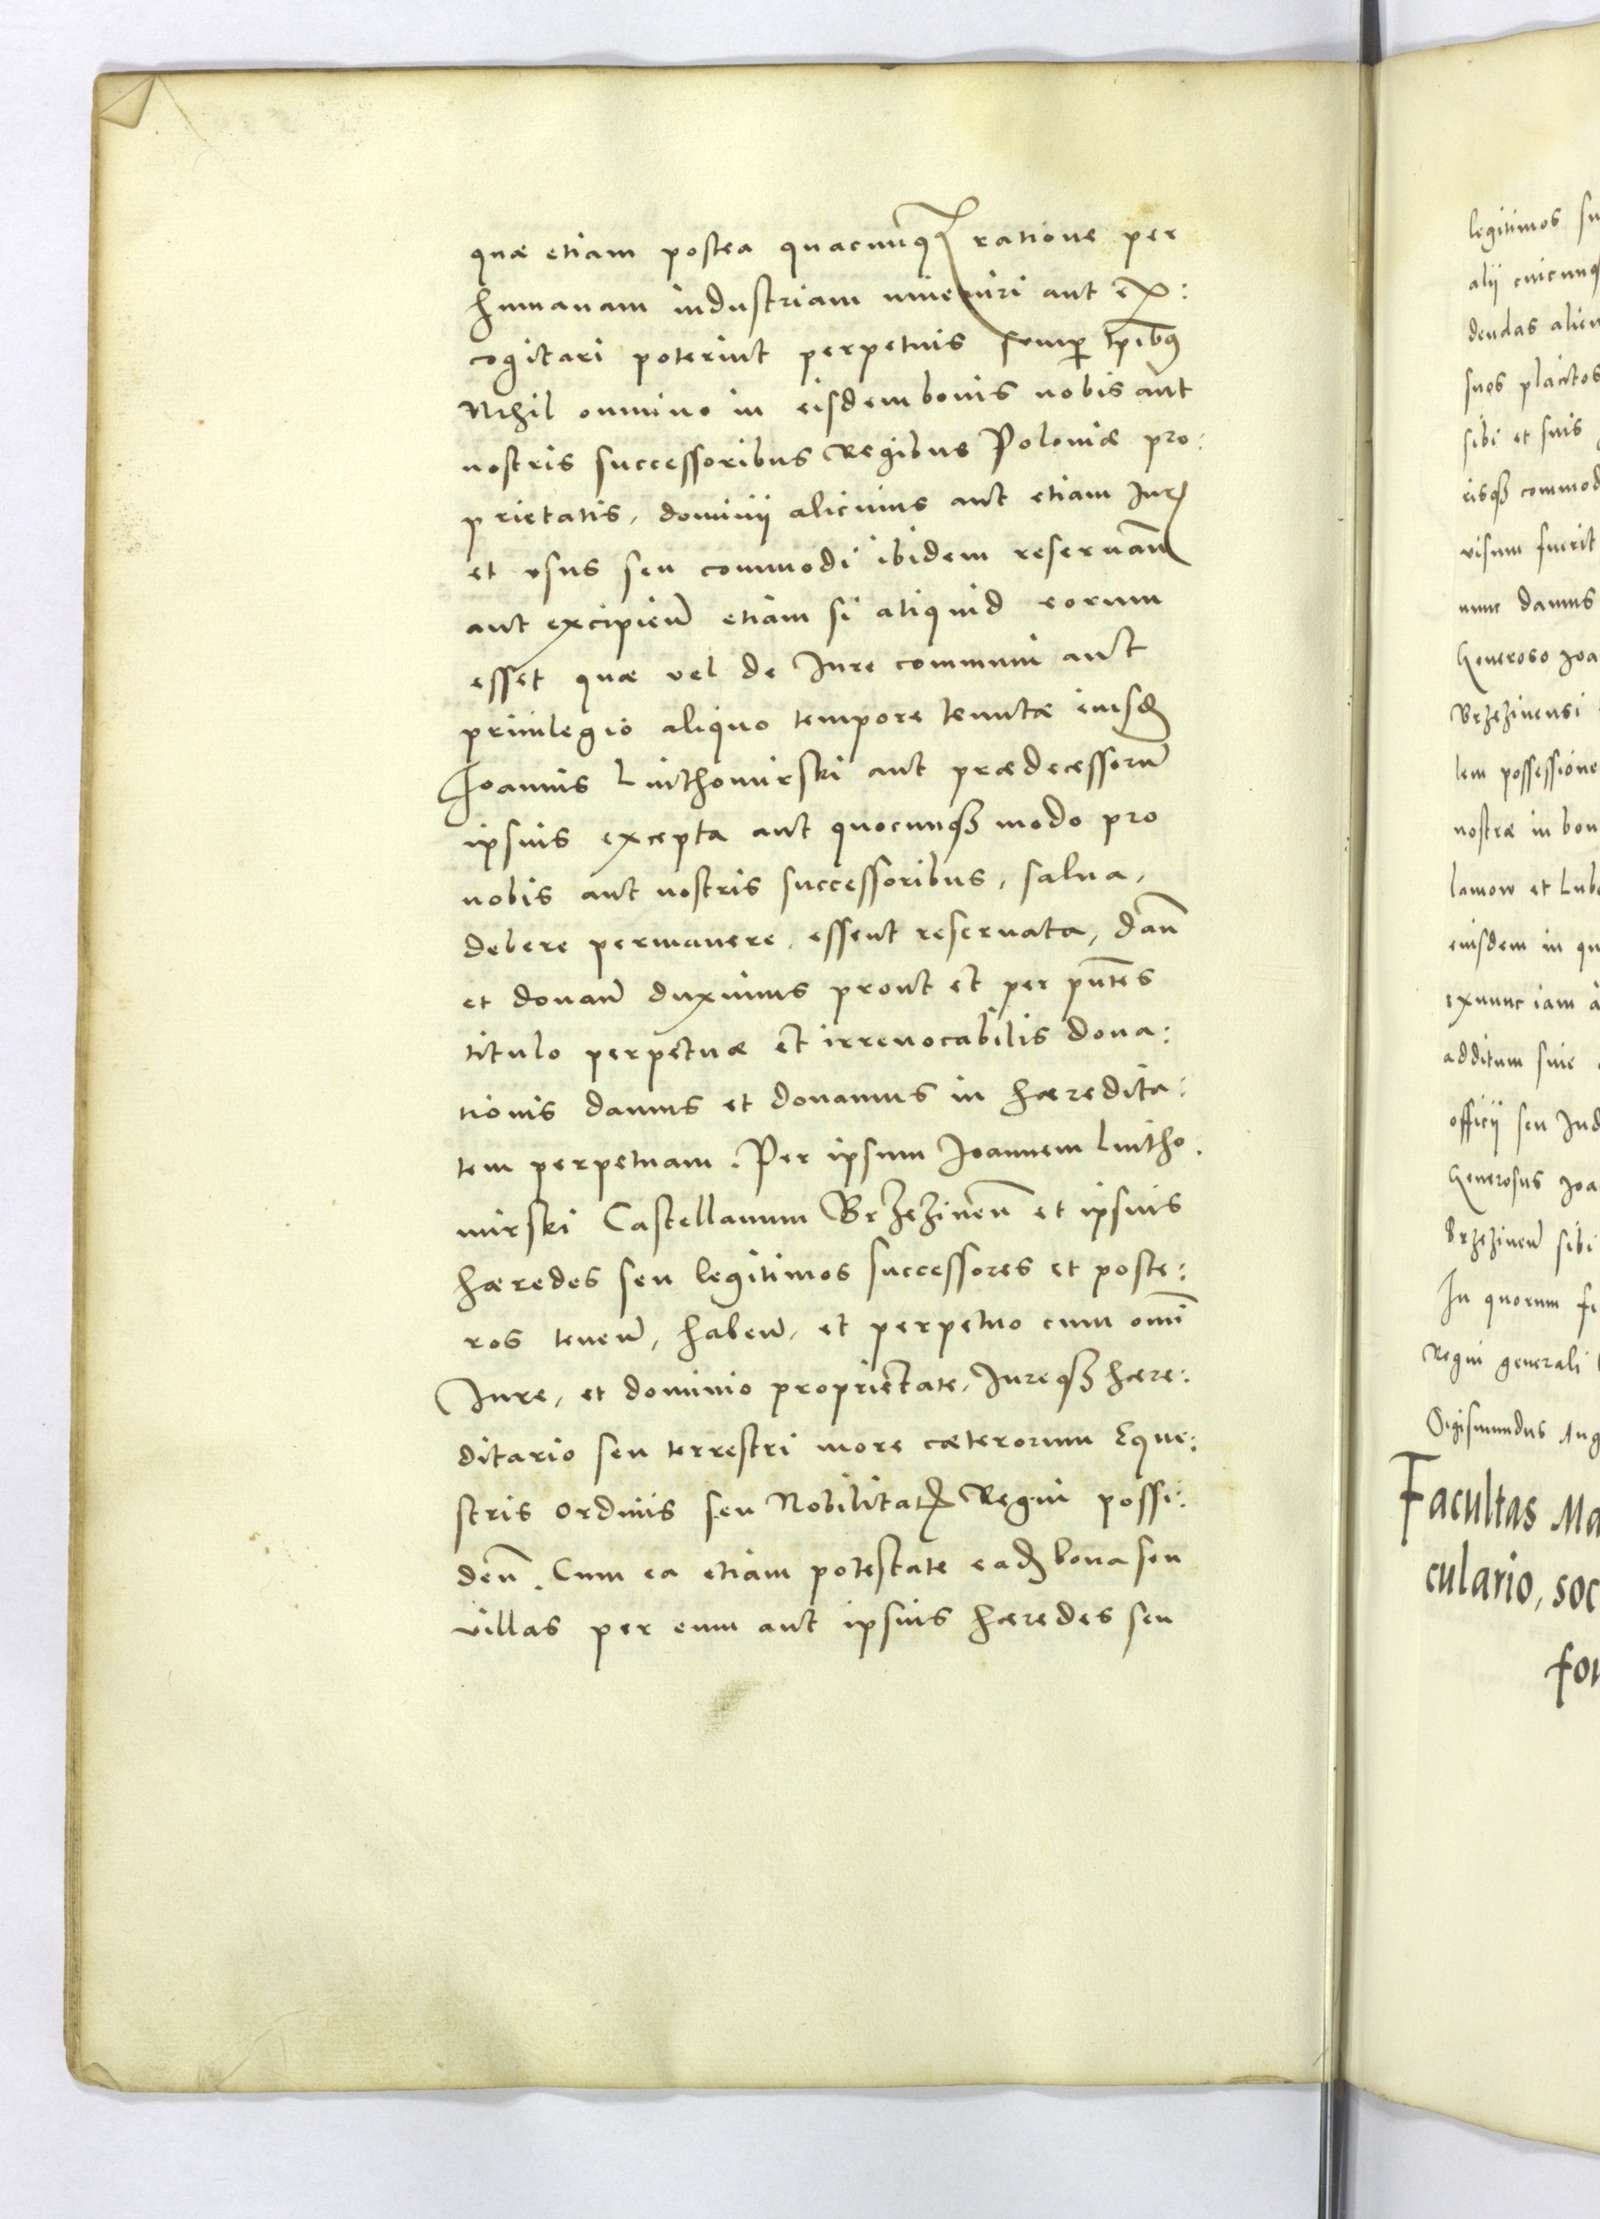 quæ etiam postea quacunq ratione per
humanam industriam inueniri aut ex:
cogitari poterint perpetuis semp tpibus
Nihil omnino in eisdem bonis nobis aut
nostris successoribus Regibus Poloniæ pro:
prietatis, dominii alicuius aut etiam Jur
et vsus seu commodi ibidem reseruan
aut excipien etiam si aliquid eorum
esset quæ vel de Jure communi aut
priuilegio aliquo tempore tenutæ eiusd
Joannis Luthomirski aut prædecessorū
ipsius excepta aut quocunq modo pro
nobis aut nostris successoribus, salua,
debere permanere, essent reseruata, dan
et donan duximus prout et per pntes
titulo perpetuæ et irreuocabilis dona:
tionis damus et donamus in hæredita:
tem perpetuam. Per ipsum Joannem Lutho.
mirski Castellanum Brzezinen et ipsius
hæredes seu legitimos successores et poste:
ros tenen, haben, et perpetuo cum omi
Jure, et dominio proprietate, Jureq hære:
ditario seu terrestri more cæterorum Eque:
stris ordinis seu Nobilitat Regni possi:
den. Cum ea etiam potestate ead bona seu
villas per eum aut ipsius hæredes seu
legitimos su
alii cuicunq
dendas alien
suos placitos
sibi et suis
risq commod
visum fuerit
nunc damus
Generoso Joa
Brzezinensi
lem possessione
nostræ in bon
lamow et Lub
eiusdem in qu
exnunc iam a
additum siue
officii seu Jud
Generosus Joa
Brzezinen sibi
In quorum fi
Regni generali
Sigismundus Aug
Facultas Ma
culario, soc
for